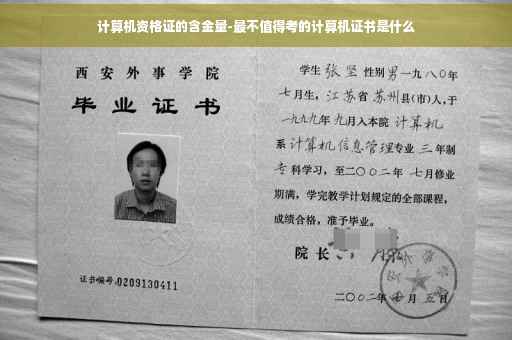 计算机资格证的含金量-最不值得考的计算机证书是什么
西安外事学院
毕业证书
证书编号:0209130411
学生张坚性别男一九八〇年
七月生,江苏省苏州县(市)人,于
一九九九年九月入本院计算机
系计算机信息管理专业三年制
专科学习,至二〇〇二年七月修业
期满,学完教学计划规定的全部课程,
成绩合格,准予毕业。
院长
二〇〇二年 月五日